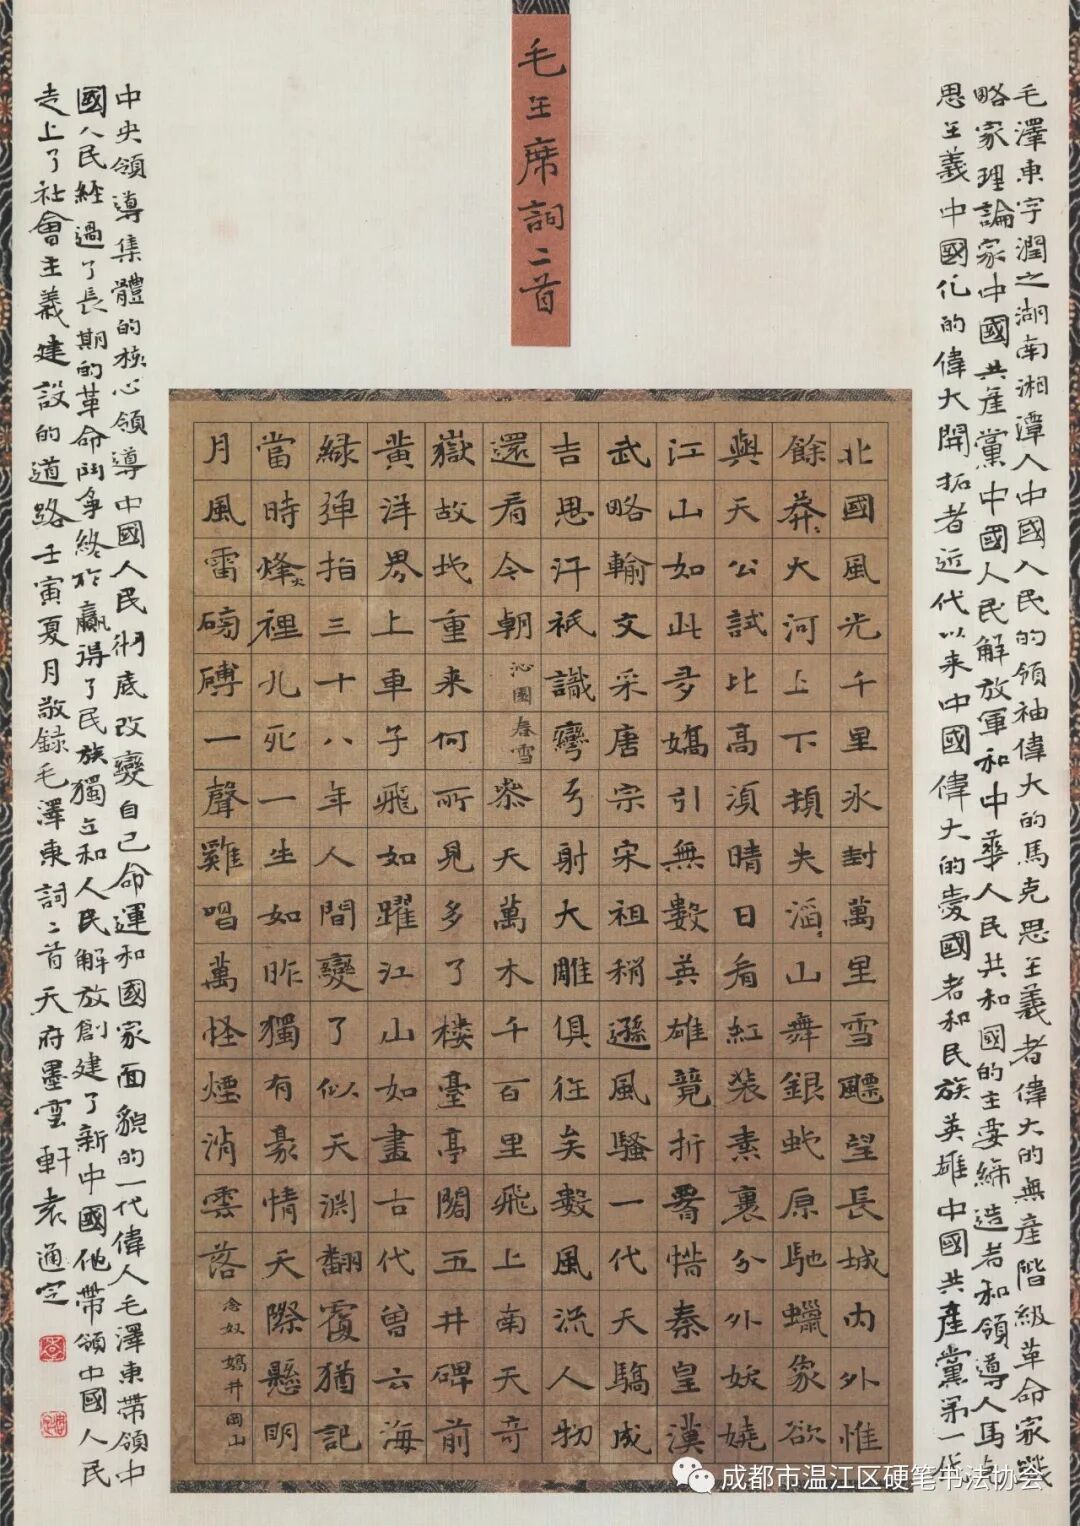 毛主席詞二首
毛澤東字潤之湖南湘潭人中國人民的領袖偉大的馬克思主義者偉大的無產階級革命家戰
略家理論家中國共產黨中國人民解放軍和中華人民共和國的主要締造者和領導人馬克
思主義中國化的偉大開拓者近代以來中國偉大的愛國者和民族英雄中國共產黨第一代
北國風光千里冰封萬里雪飄望長城內外惟
餘莽大河上下頓失滔山舞銀蛇原馳蠟象欲
與天公試比高須晴日看紅裝素裹分外妖嬈
江山如此多嬌引無數英雄競折腰惜秦皇漢
武略輸文采唐宗宋祖稍遜風騷一代天驕成
吉思汗祇識彎弓射大雕俱往矣數風流人物
還看今朝 沁園春雪 參天萬木千百里飛上南天奇
嶽故地重來何所見多了樓臺亭閣五井碑前
黃洋界上車子飛如躍江山如畫古代曾云海
綠彈指三十八年人間變了似天淵翻覆猶記
當時烽火裡九死一生如昨獨有豪情天際懸明
月風雷磅礴一聲雞唱萬怪煙消雲落 念奴嬌井岡山
中央領導集體的核心領導中國人民徹底改變自己命運和國家面貌的一代偉人毛澤東帶領中
國人民經過了長期的革命鬥爭終於贏得了民族獨立和人民解放創建了新中國他帶領中國人民
走上了社會主義建設的道路壬寅夏月敬錄毛澤東詞二首天府墨雲軒袁通定
成都市温江区硬笔书法协会